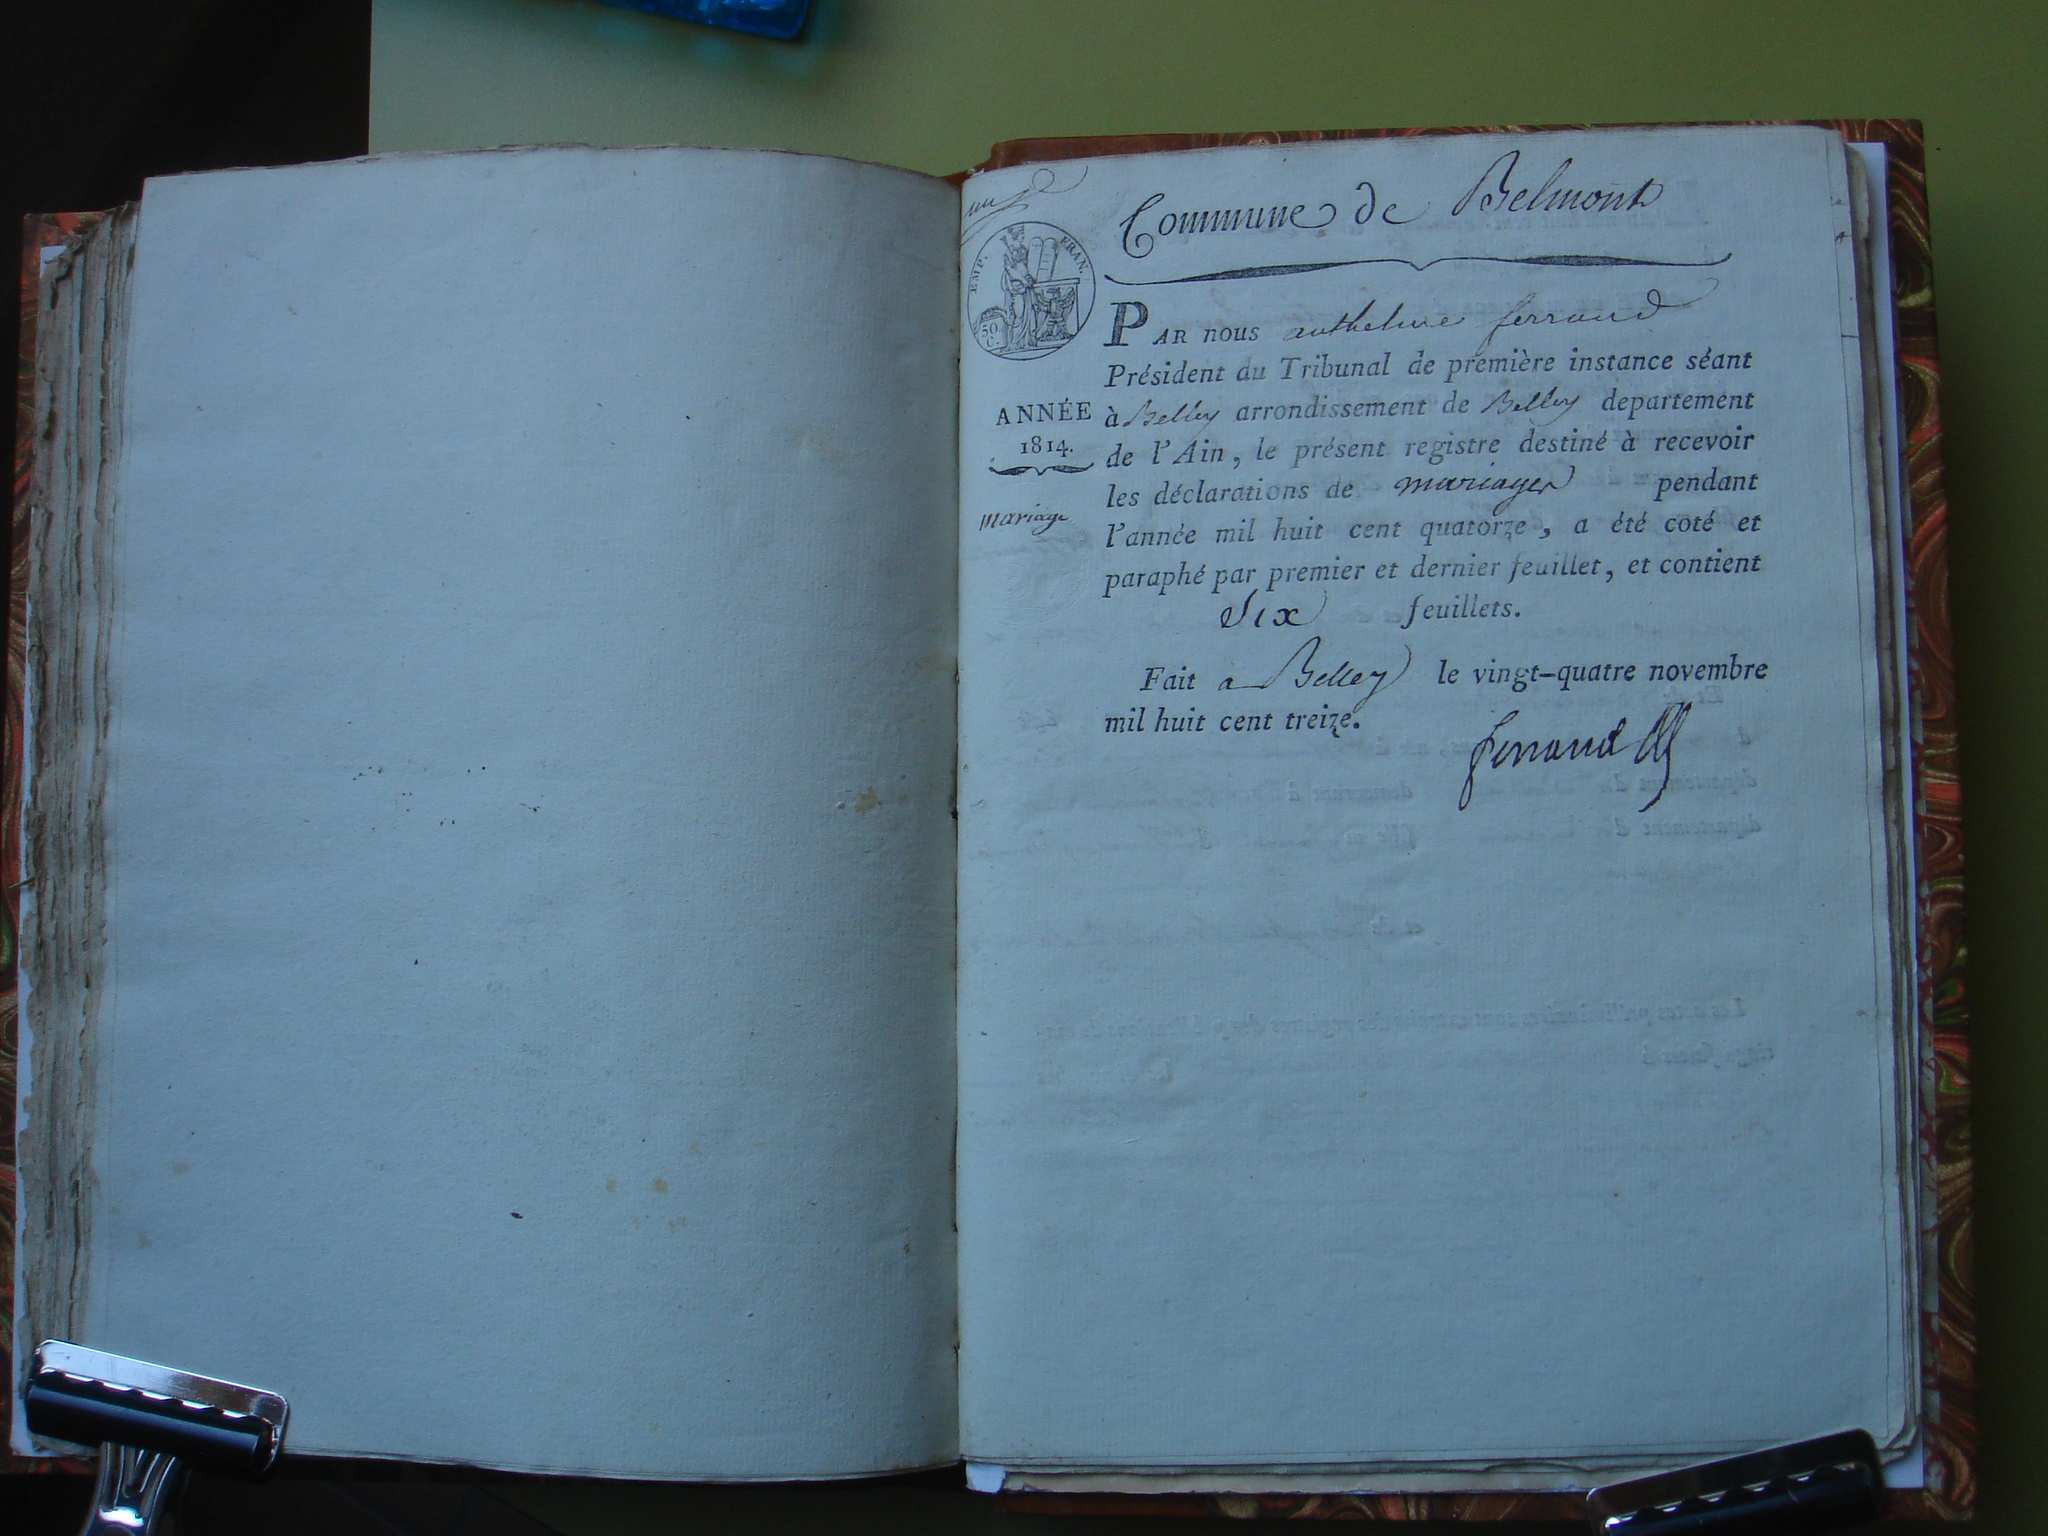 Commune de Belmont
EMP. FRAN.
50
C.
PAR nous anthelme ferrand
Président du Tribunal de première instance séant
ANNÉE
à Belley arrondissement de Belley departement
1814.
de l'Ain, le présent registre destiné à recevoir
les déclarations de mariages pendant
mariage
l'année mil huit cent quatorze, a été coté et
paraphé par premier et dernier feuillet, et contient
Six feuillets.
Fait a Belley le vingt-quatre novembre
mil huit cent treize.
ferrand